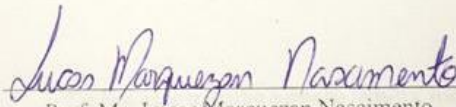 Lucas Marquezan Nascimento
Prof. Me. Lucas Marquezan Nascimento